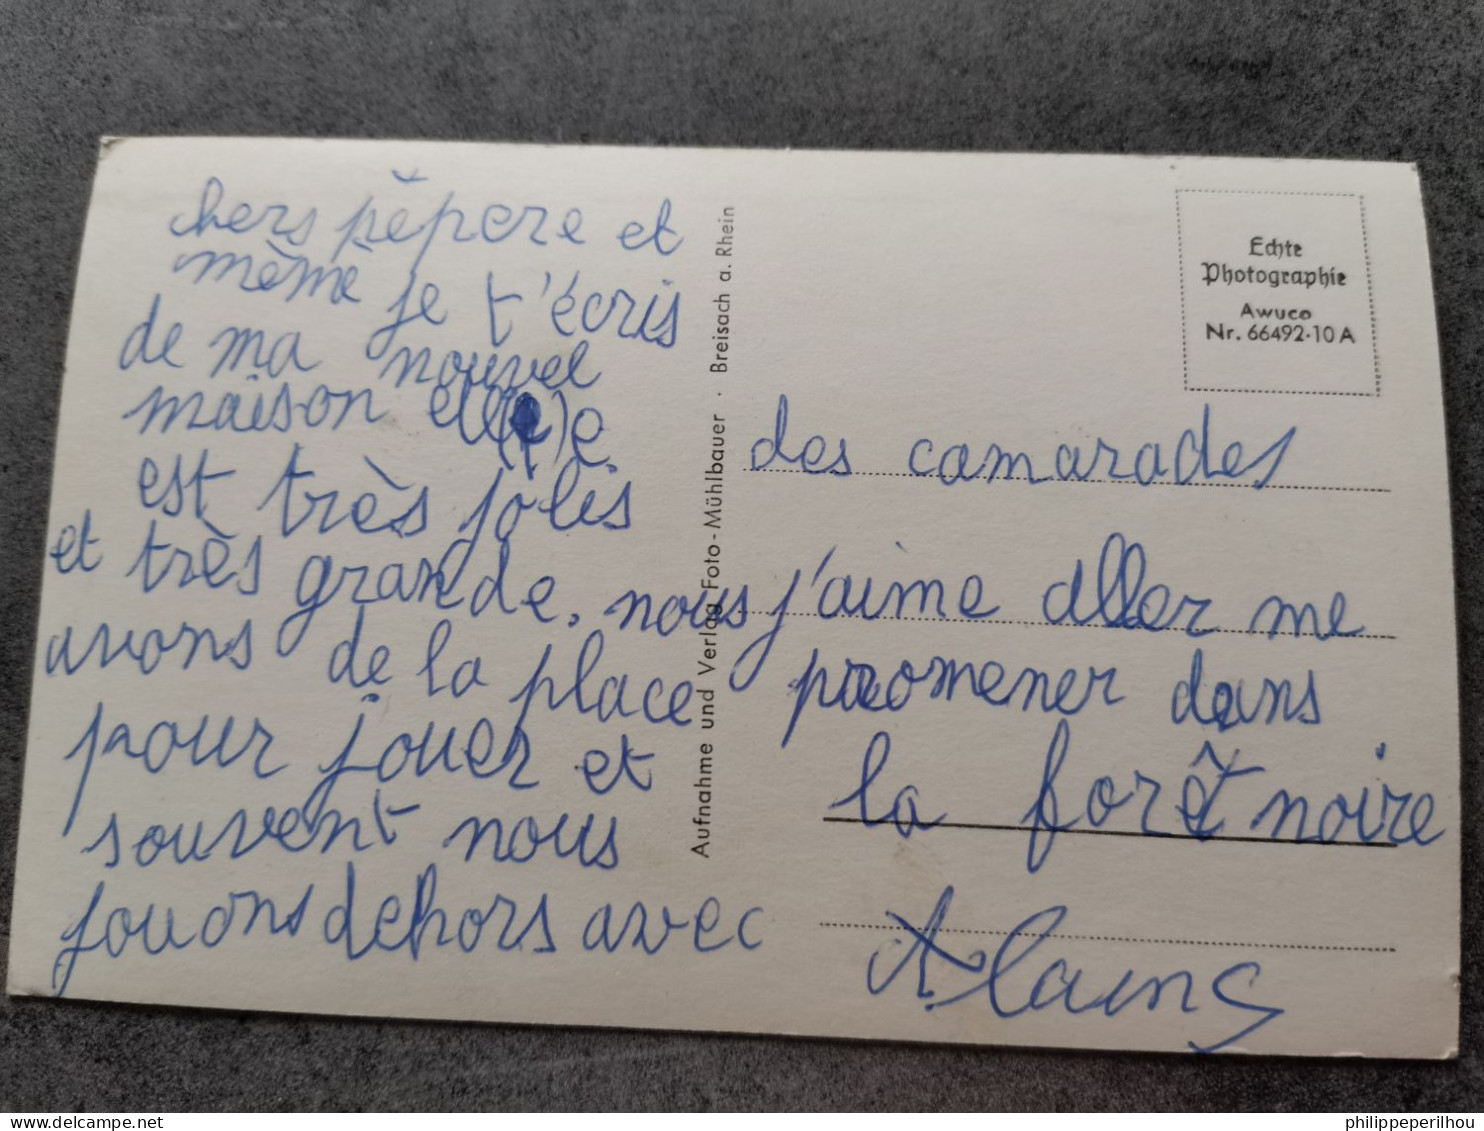 chers pěpere et
mème je t'écris
de ma nouvel
maison elle
est très jolis
et très grande. nous
avons de la place
pour jouer et
souvent nous
jouons dehors avec
Aufnahme und Verlag Foto-Mühlbauer · Breisach a. Rhein
Echte
Photographie
Awuco
Nr. 66492·10 A
des camarades
j'aime aller me
promener dans
la forêt noire
Alains
delcampe.net
philippeperilhou